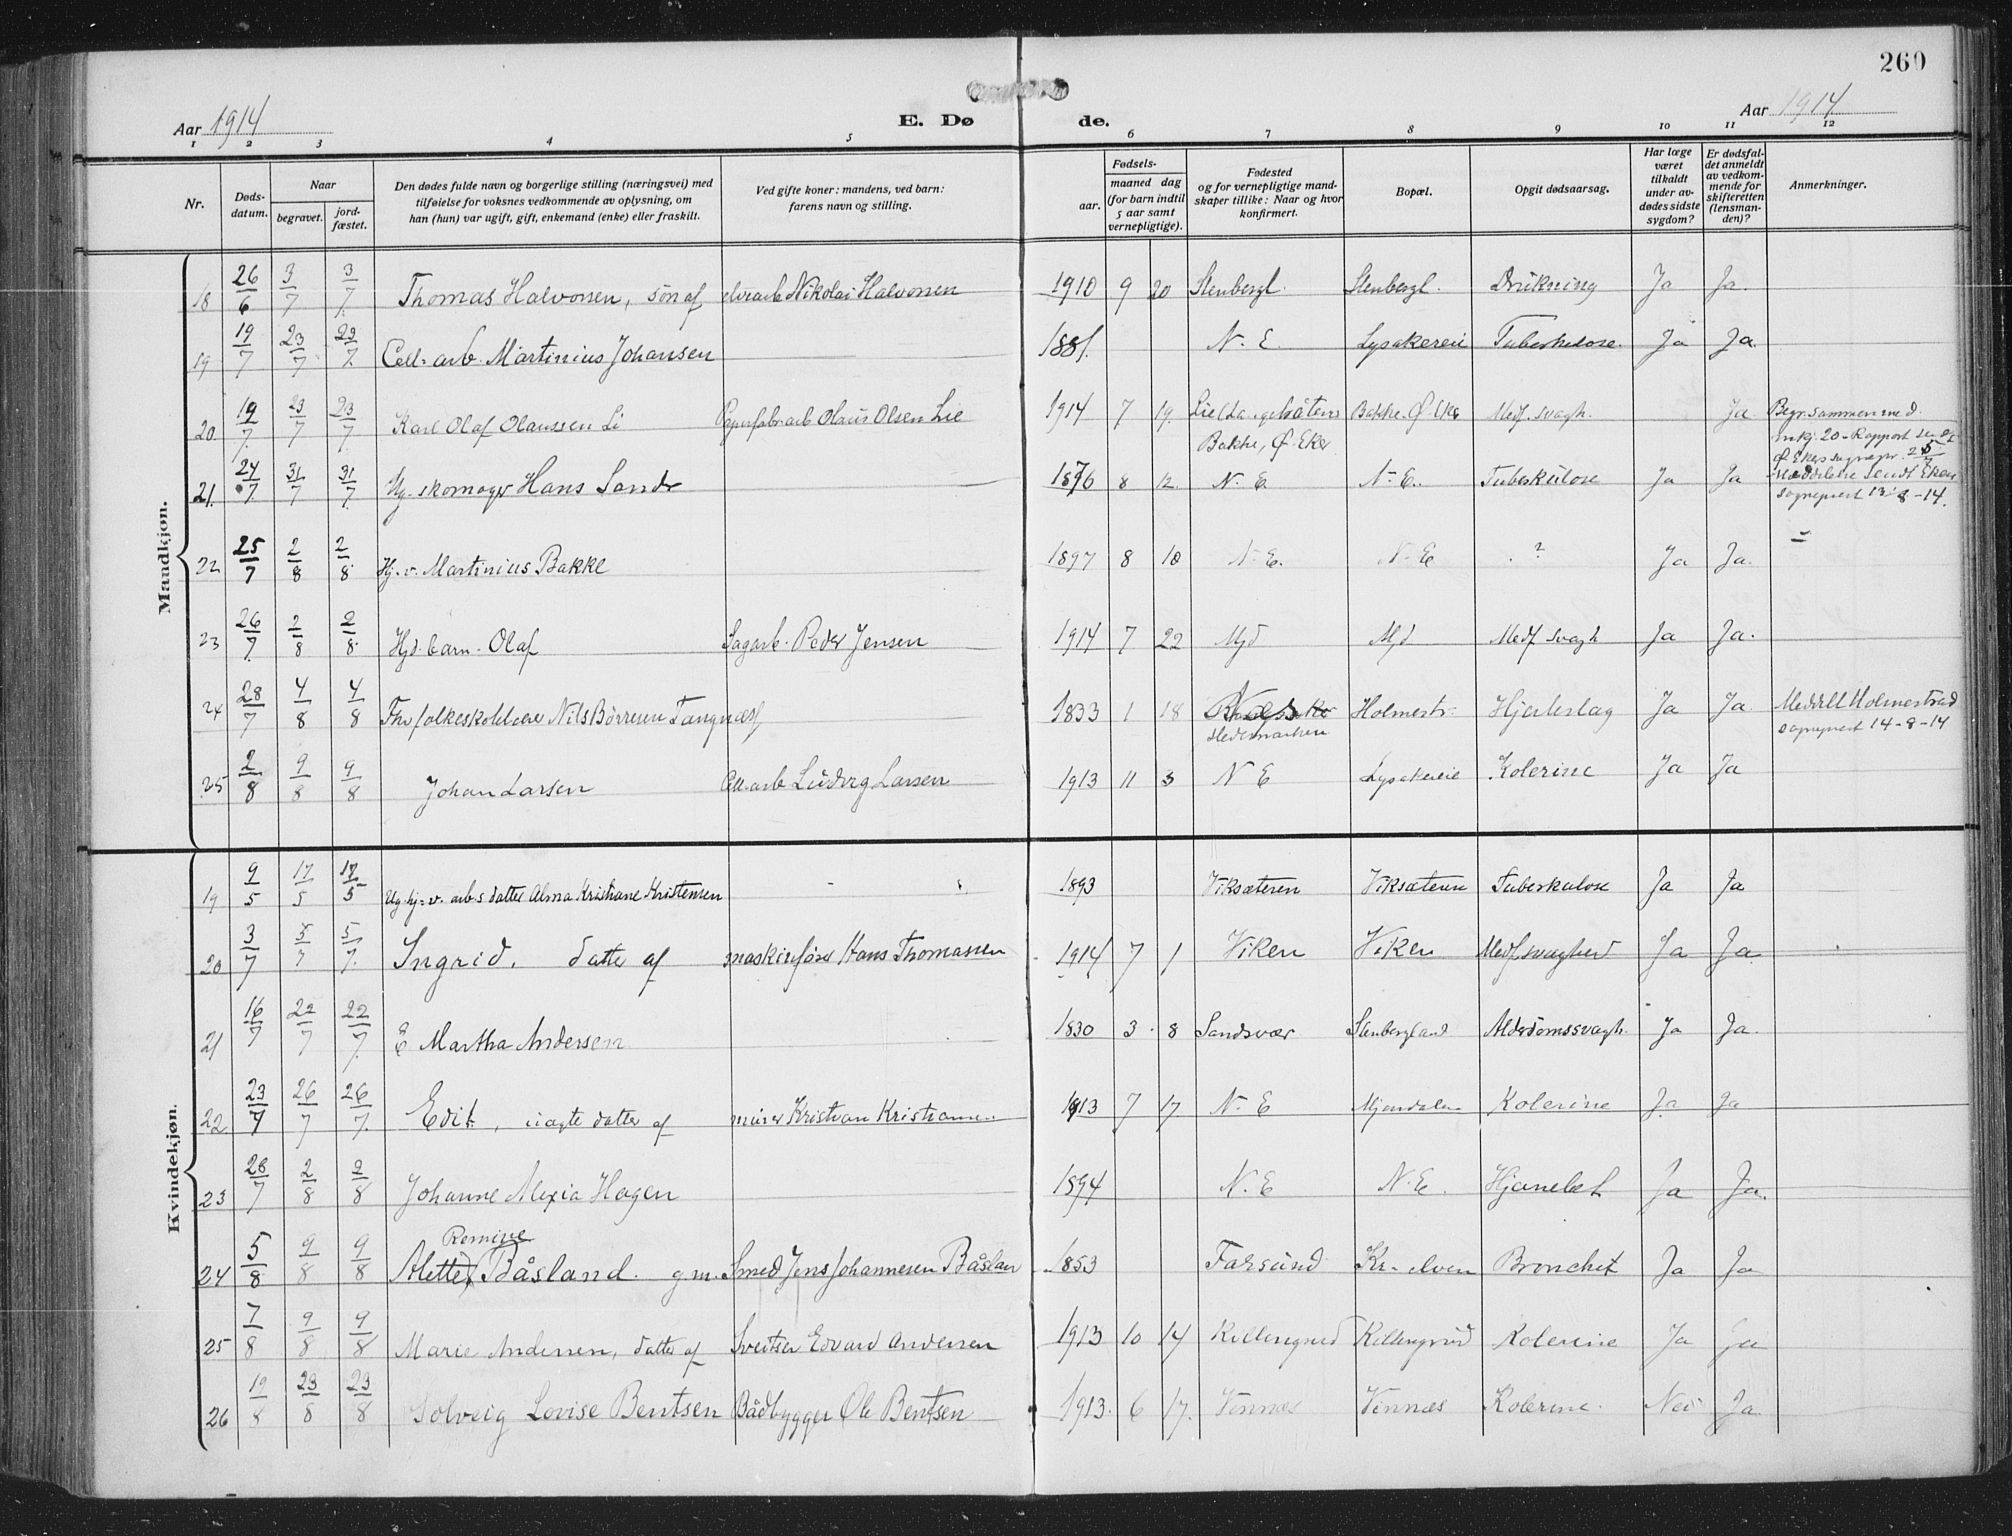 260
Aar 1914
E. Dø
de.
Aar 1914
1 2 3 4 5 6 7 8 9 10 11 12
Nr.
Døds-datum.
Naar
begravet.
jord-fæstet.
Den dødes fulde navn og borgerlige stilling (næringsvei) med tilføielse for voksnes vedkommende av oplysning, om han (hun) var ugift, gift, enkemand (enke) eller fraskilt.
Ved gifte koner: mandens, ved barn: farens navn og stilling.
Fødsels-
aar.
maaned dag
(for barn indtil 5 aar samt vernepligtige).
Fødested og for vernepligtige mand-skaper tillike: Naar og hvor konfirmert.
Bopæl.
Opgit dødsaarsag.
Har læge været tilkaldt under av-dødes sidste sygdom?
Er dødsfal-det anmeldt av vedkom-mende for skifteretten (lensman-den)?
Anmerkninger.
Mandkjøn.
18 26/6 3/7 3/7 Thomas Halvorsen, søn af elvearb Nikolai Halvorsen 1910 9 20 Stenbergl. Stenbergl. Drukning Ja Ja.
19 19/7 23/7 23/7 Cell-arb. Martinius Johansen 1881. N. E. Lysakereie Tuberkulose. Ja Ja.
20 19/7 23/7 23/7 Karl Olaf Olaussen Li Papirfabr.arb Olaus Olsen Lie 1914 7 19. Bakke, Ø. Eker Bakke. Ø. Eker Medf. svagh. Ja Begr. sammen med
mkj. 20 - Rapport sendt
Ø Ekers sognepr. 25/7
21. 24/7 31/7 31/7 Ug. skomager Hans Sande 1876 8 12. N. E. N. E.. Tuberkulose Ja Ja Meddelelse sendt Ekers
sogneprest 13-8-14.
22 25/7 2/8 2/8 Hj. v. Martinius Bakke 1897 8 18 N. E. N. E ? Ja Ja. =
23 26/7 2/8 2/8 Hjd. barn. Olaf Sagarb. Peder Jensen 1914 7 22 Mjd Mjd Medf svagh Ja Ja.
24 28/7 4/8 4/8 Fhv folkeskolelærer Nils Børresen Tangnæs 1833 1 18 Hedemarken Holmestr. Hjerteslag Ja Ja. Meddelt Holmestrand
sogneprest 14-8-14
25 2/8 9/8 9/8 Johan Larsen Cell.arb Ludvig Larsen 1913 11 3 N E Lysakereie Kolerine Ja Ja
Kvindekjøn.
19 9/5 17/5 17/5 Ug. hj. v. arb.s datter Alma Kristiane Kristensen - 1893 Viksæteren Viksæteren Tuberkulose Ja Ja
20 3/7 5/7 5/7 Ingrid, datter af maskinfører Hans Thomassen 1914 7 1 Viken Viken Medf svaghed Ja Ja
21 16/7 22/7 22/7 E Martha Andersen 1830 3 8 Sandsvær Stenbergland Alderdomssvagh. Ja Ja.
22 23/7 26/7 26/7 Edit, uægte datter af murer Kristian Kristiansen 1913 7 17 N. E Mjøndalen Kolerine Ja Ja
23 28/7 2/8 2/8 Johanne Alexia Hagen 1894 N. E N. E. Ja Ja.
24 5/8 9/8 9/8 Alette Romine Båsland. g.m. Smed Jens Johannesen Båsland 1853 Farsund Kr. elven Bronchit Ja Ja
25 7/8 9/8 9/8 Marie Andersen, datter af Sveitser Edvard Andersen 1913 10 14 Killingrud Killingrud Kolerine Ja Ja
26 19/8 23/8 23/8 Solveig Lovise Bentsen Bådbygger Ole Bentsen 1913. 6 17. Vennæs Vennæs Kolerine. Nei Ja.